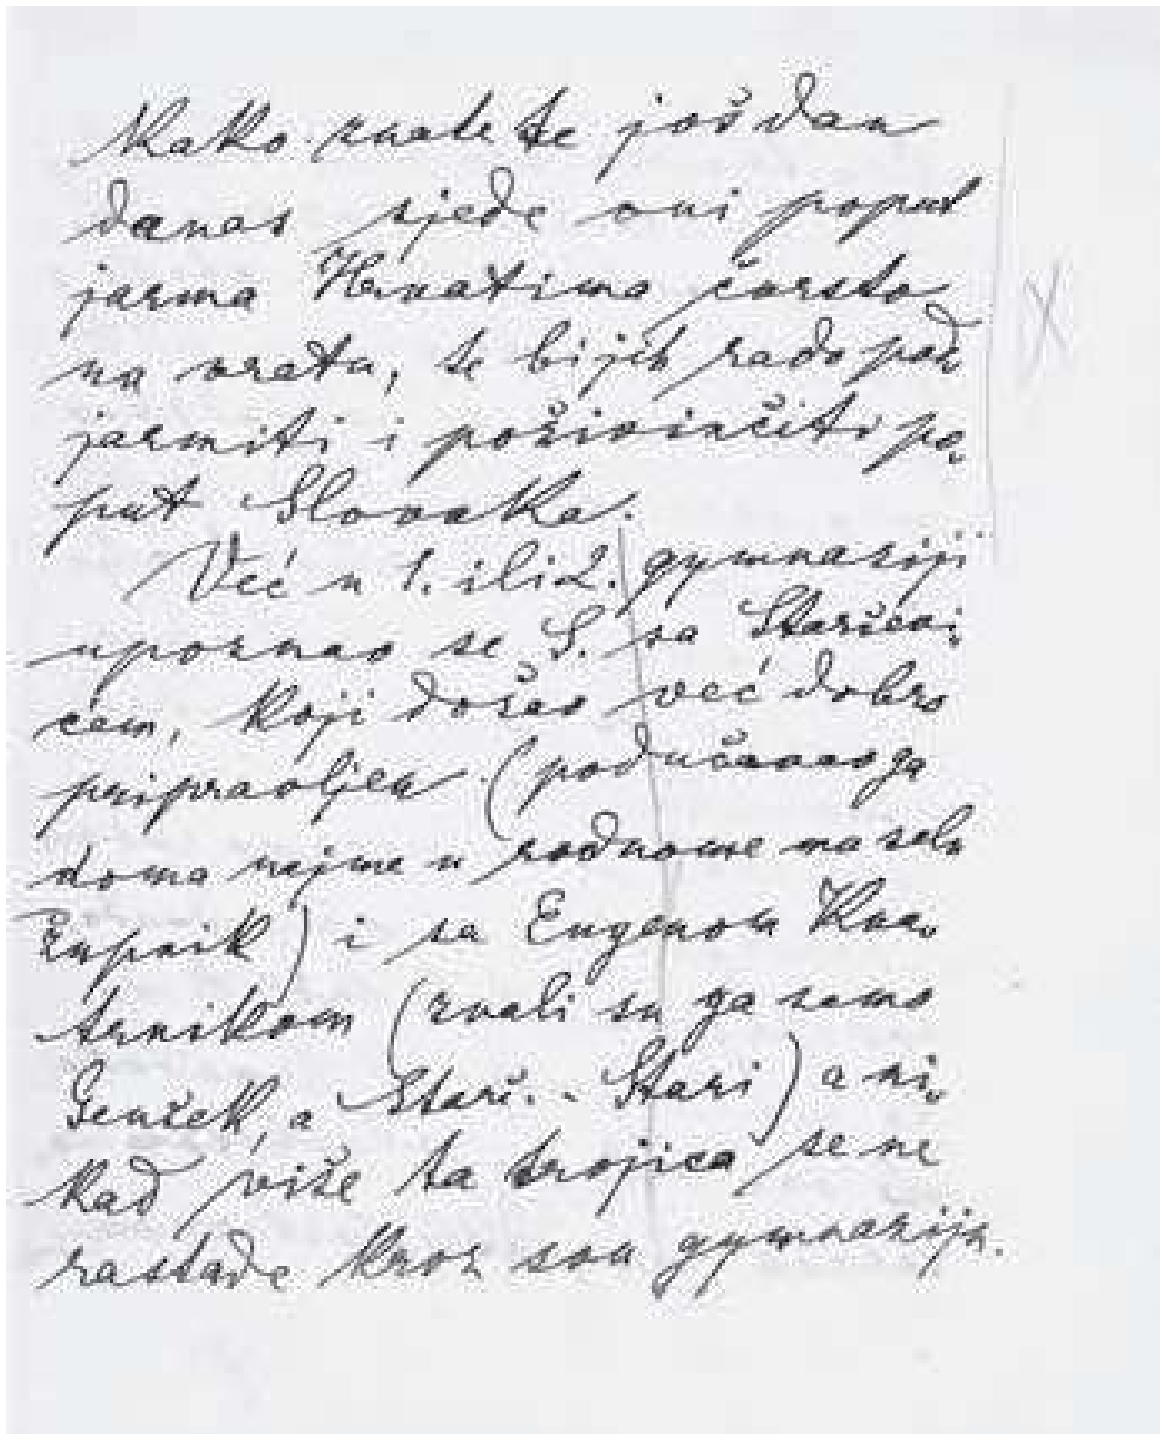 Kako znate te još dan
danas sjede oni poput
jarma Hrvatima čvrsto
na vratu, te bi jih rado pod
jarmiti i poživinčiti po„
put Slovaka.
Već u 1. ili 2. gymnaziji
upoznao se S. sa Starčevi„
ćem, koji došao već dobro
pripravljen (podučavao ga
doma nejme u rodnome mu selu
župnik) i sa Eugenom Kva„
ternikom (zvali su ga samo
Genček, a Starč... Stari) a ni„
kad više ta trojica se ne
rastade kroz svu gymnaziju.